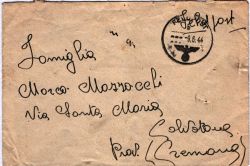 Feldpost
9.8.44
Famiglia
Marco Mazzocchi
Via Santa Maria
Prov. (Cremona)